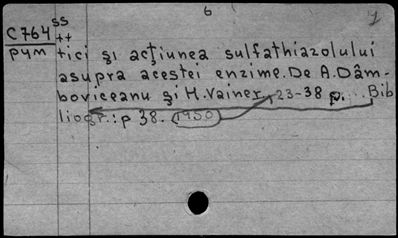 6 1
C764 ss ++
pym tici şi acţiunea sulfathiazolului
asupra acestei enzime. De A. Dâm-
boviceanu şi H. Vainer, 23-38 p. ... Bib
liogr.: p 38. 1950